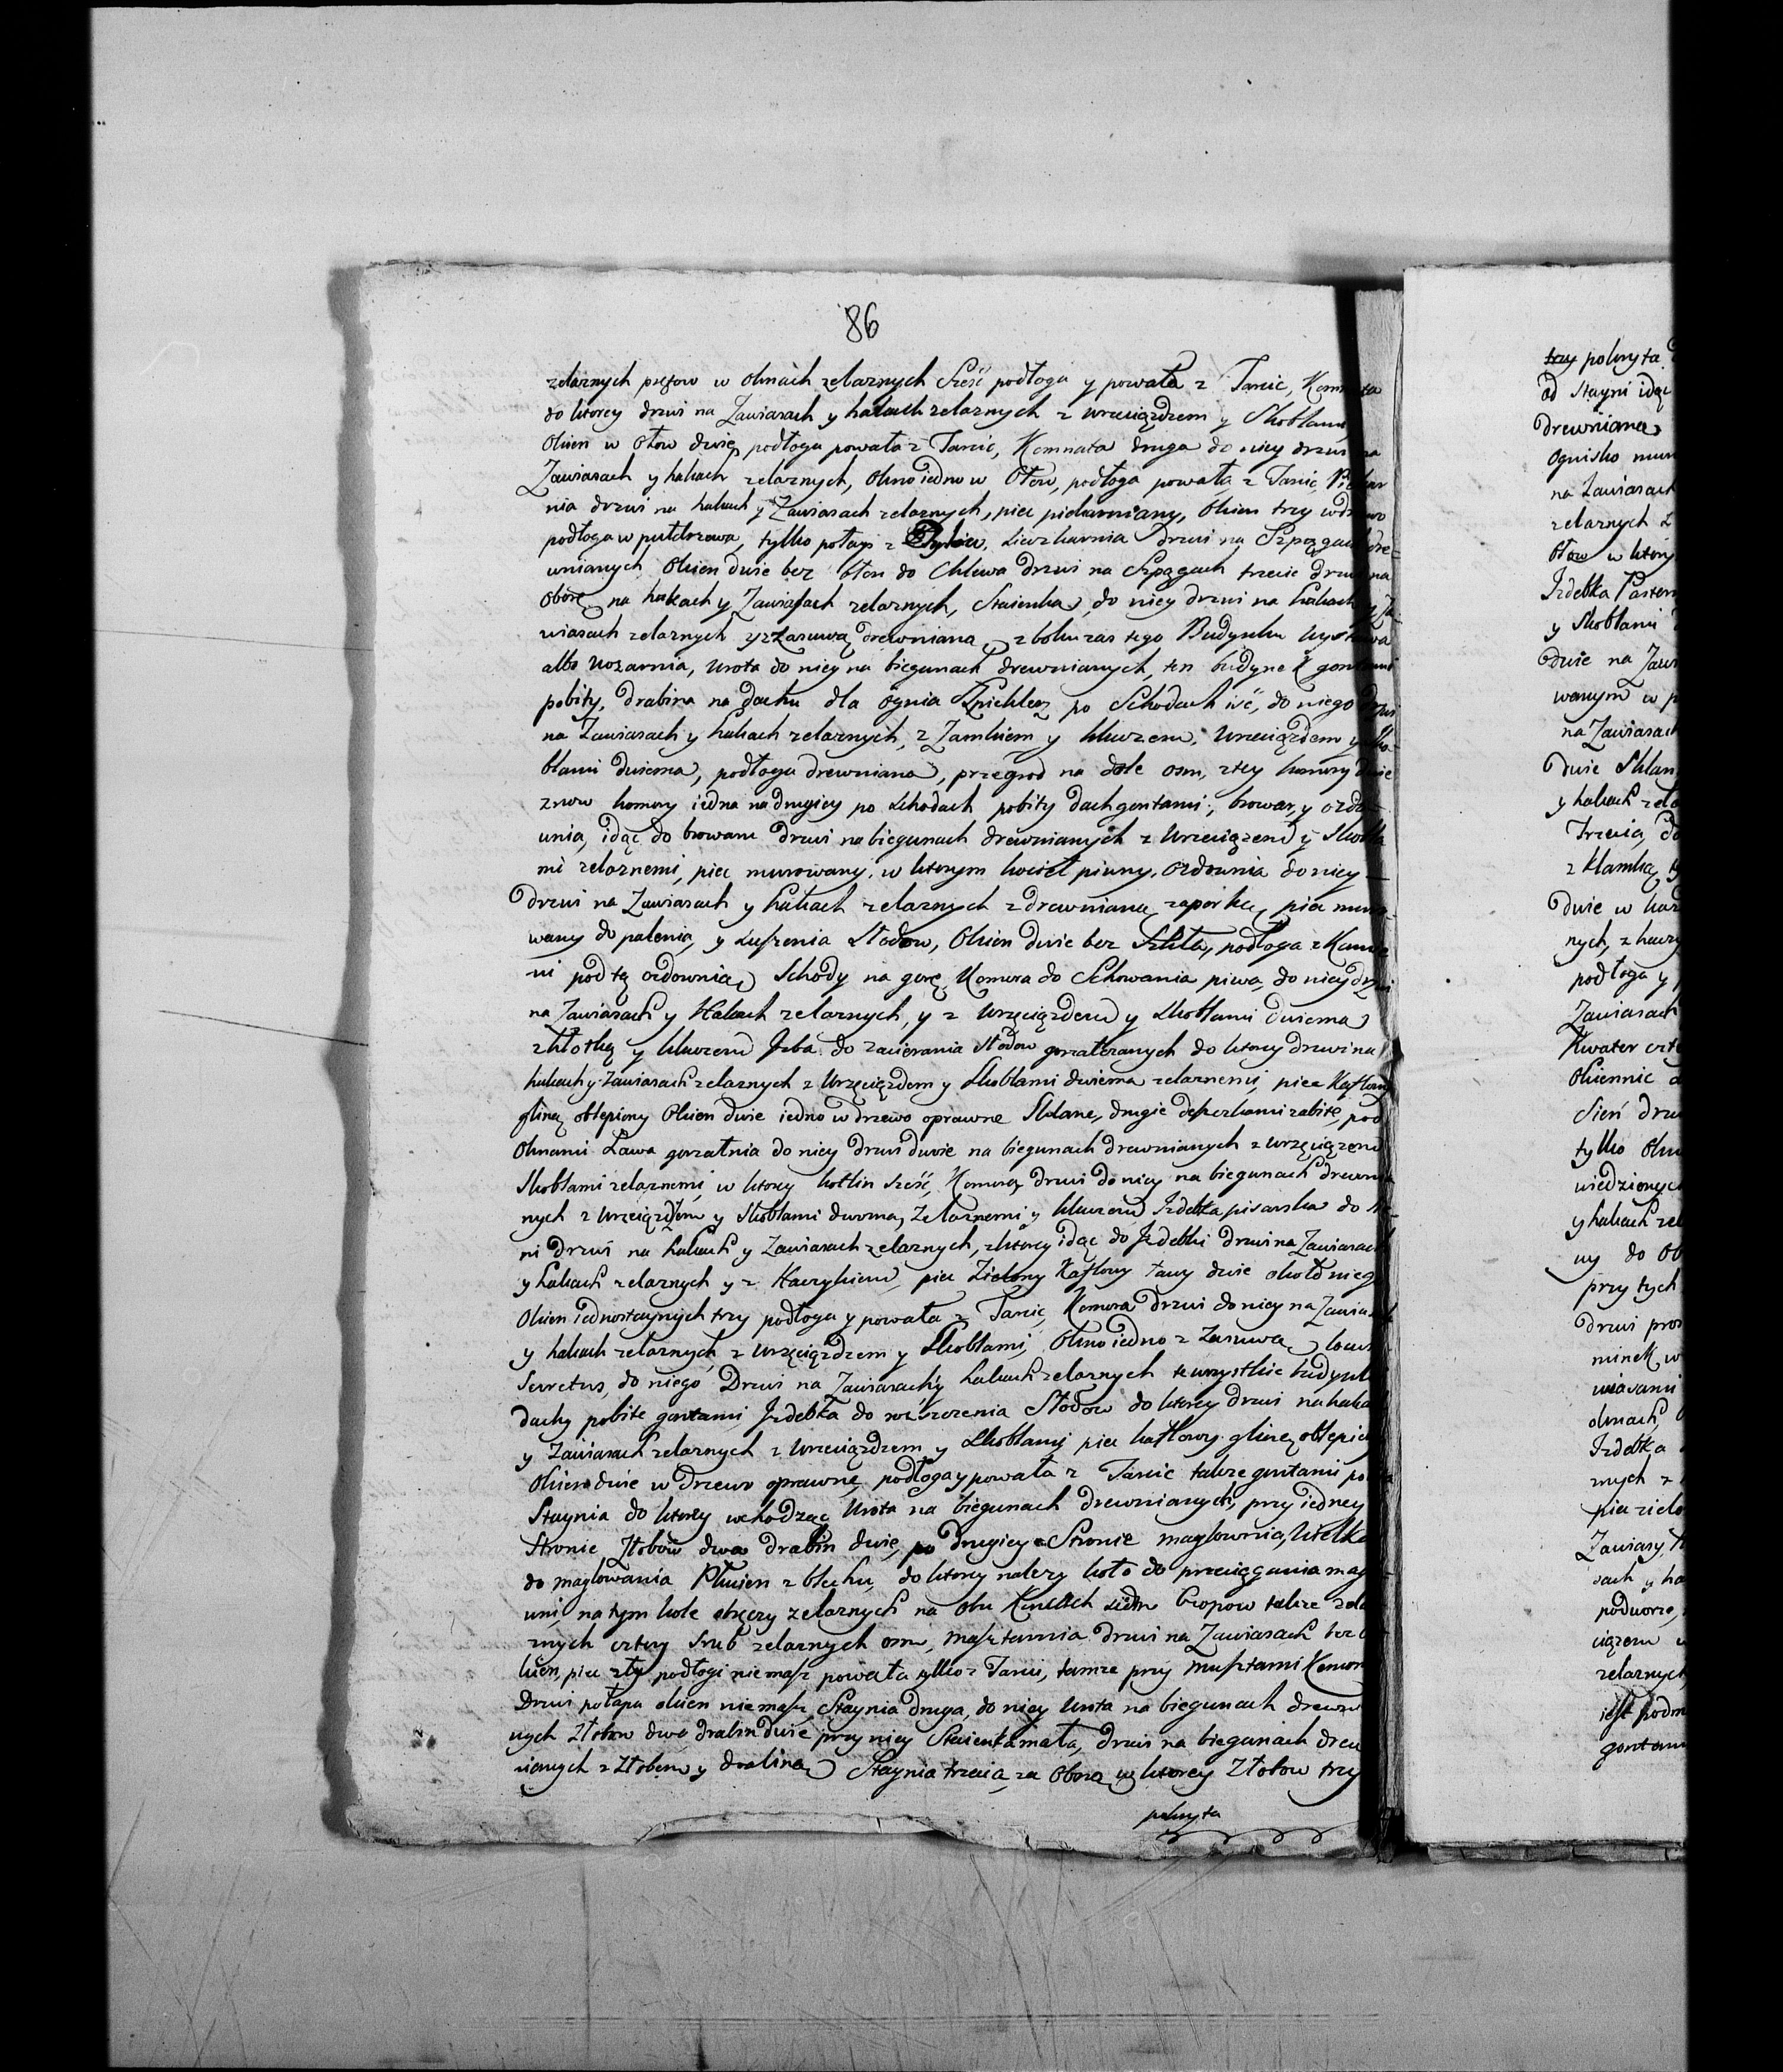 86
zelaznych prętow w oknach zelaznych Sześć podłoga y powała z Tarcic, Komnata
do ktorey drzwi na Zawiasach y hakach zelaznych z wrzeciązdzem y Skoblami
Okien w ołow dwie, podłoga powała z Tarcic, Komnata druga do niey drzwi na
Zawiasach y hakach zelaznych, Okno iedno w Ołow, podłoga powała z Tarcic, Piekar
nia drzwi na hakach y Zawiasach zelaznych, piec piekarniany, Okien trzy w drzewo
podłoga w puł drzewa, tylko połap z Dylow, Kuzharnia drzwi na Szpągach dre-
wnianych, Okien dwie bez błon do Chlewa drzwi na Szpągach trzecie drzwi na
Oborę na hakach y Zawiasach zelaznych, Staienka do niey drzwi na hakach y Za
wiasach zelaznych y z zasuwą drewnianą, z boku zas tego Budynku Wystawa
albo Wozarnia, wrota do niey na biegunach drewnianych, ten budynek gontami
pobity, drabina na dachu dla ognia Spichlerz po Schodach iść, do niego drzwi
na Zawiasach y hakach zelaznych, z Zamkiem y kluczem, Wrzeciązdzem y Sko-
blami dwiema, podłoga drewniana, przegrod na dole osm, z tey komory dwie
znow komory iedna na drugiey po Schodach pobity dach gontami; browar, y ozdo
wnia, idąc do browaru drzwi na biegunach drewnianych z Wrzeciązem y Skobla
mi zelaznemi, piec murowany, w ktorym kocieł piwny, Ozdownia do niey
drzwi na Zawiasach y hakach zelaznych z drewnianą zaporką, piec muro-
wany do palenia, y suszenia Słodow, Okien dwie bez Szkła, podłoga z Kamie
ni pod tą ozdownią, Schody na gorę, Komora do Schowania piwa, do niey drzwi
na Zawiasach y Hakach zelaznych, y z Wrzęciązdem y Skoblami dwiema
z kłotką y kluczem Izba do zacierania Słodow gorzałczanych do ktorey drzwi na
hakach y Zawiasach zelaznych z Wrzęciązdem y Skoblami dwiema zelaznemi, piec Kaflowy
gliną oblepiony Okien dwie iedno w drzewo oprawne Sklane, drugie deszczkami zabite, pod
Oknami Ława gorzalnia do niey drzwi dwoie na biegunach drewnianych z wrzęciązem
Skoblami zelaznemi, w ktorey kotlin sześć, Komora drzwi do niey na biegunach drewnia
nych z wrzeciązdzem y Skoblami dwoma, Zelaznemi y kluczem Izdebka pisarska do Sie-
ni drzwi na hakach y Zawiasach zelaznych, z ktorey idąc do Izdebki drzwi na Zawiasach
y hakach zelaznych y z Haczykiem, piec Zielony Kaflowy ławy dwie około niego
Okien iednostaynych trzy podłoga y powała z Tarcic, Komora drzwi do niey na Zawiasach
y hakach zelaznych, z wrzęciązdzem y Skoblami, Okno iedno z Zasuwą, locus
Secretus, do niego Drzwi na Zawiasach y hakach zelaznych te wszystkie budynki
dachy pobite gontami, Izdebka do roszczenia Słodow do ktorey drzwi na hakach
y Zawiasach zelaznych z Wrzeciązdzem y Skoblami, piec kaflowy gliną oblepiony
Okien dwie w Drzewo oprawne, podłoga y powała z Tarcic także gontami pobita
Staynia do ktorey wchodząc Wrota na biegunach drewnianych, przy iedney
Stronie Złobow dwa drabin dwie, po drugiey Stronie maglownia, Wielka
do maglowania Płucien z blechu, do ktorey nalezy koło do przeciągania mag-
wni, na tym kole obręczy zelaznych na obu Koncach siedm Czopow także zela
znych cztery Srub zelaznych osm, Masztarnia drzwi na Zawiasach bez o
kien, piec zły podłogi niemasz powała tylko z Tarcic, tamze przy Masztarni Komora
Drzwi połapu okien niemasz, Staynia druga, do niey Wrota na biegunach drewnia
nych Złobow dwa drabin dwie przy niey Staienka mała, drzwi na biegunach drew
nianych z Złobem y drabiną Staynia trzecia, za Oborą w ktorey Złobow trzy
pokryta
trzy pokryta
od Stayni idąc
drewniana
Ognisko mur
na Zawiasach
zelaznych z
ołow w ktory
Izdebka Paster
y Skoblami
dwie na Zaw
wanym w p
na Zawiasach
dwie Sklan
y hakach zela
Trzecia, do
z klamką, ty
dwie w kaz
nych, z haczy
podłoga y
Zawiasach
Kwater czte
Okiennic d
Sień drzw
tylko okn
wiedzionych
y hakach zel
ny do Ob
przy tych
drzwi pros
minek w
wiasami
oknach,
Izdebka
znych z
piec zielo
Zawiasy,
sach y ha
podworze,
ciązem
zelaznych
iest podm
gontam